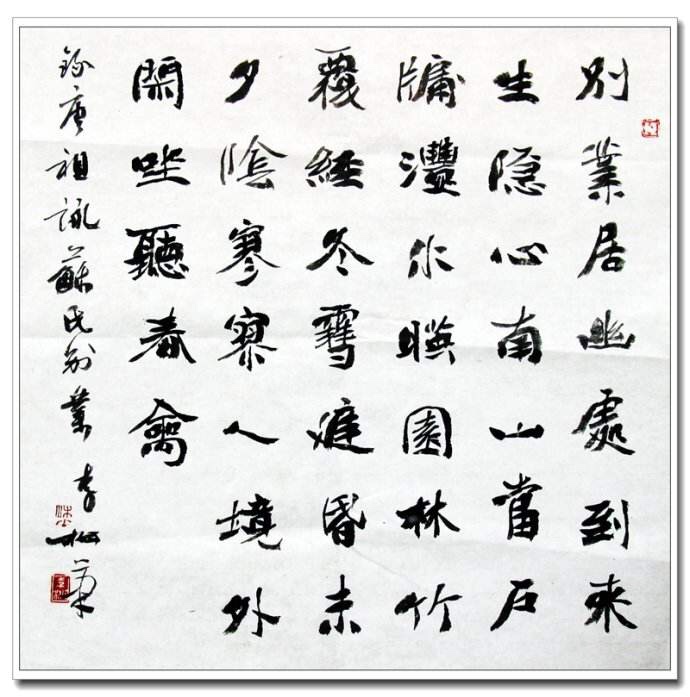 別業居幽處到來
生隐心南山當戶
牖灃水暎園林竹
覆經冬雪庭昏未
夕陰寥寥人境外
閑坐聽春禽
錄唐祖詠蘇氏別業 李